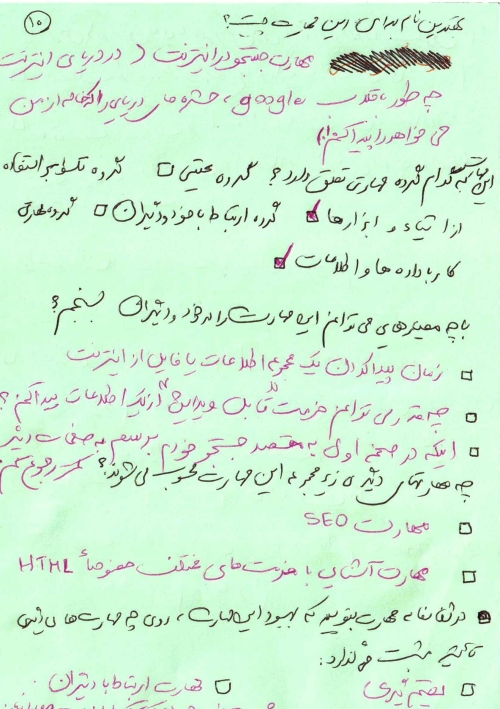 ۱۵
بهترین نام برای این مهارت چیست؟
مهارت جستجو در اینترنت (در دریای اینترنت
چه طور با قلاب google، حشره های دریایی را که
می خواهم را پیدا کنم!)
این مهارت به کدام گروه مهارتی تعلق دارد؟ گروه عینی گروه تکنولوژی استفاده
از اشیاء و ابزارها گروه ارتباط با خود و دیگران گروه مهارت
کار با داده ها و اطلاعات
با چه معیارهایی می توانم این مهارت را در خود و دیگران بسنجم؟
زمان پیدا کردن یک مجموعه اطلاعات یا فایل از اینترنت
چه قدر می توانم فرمت قابل ویرایش از یک اطلاعات پیدا کنم؟
اینکه در صفحه اول به مقصد جستجو خودم برسم به صفحات دیگر کمتر رجوع کنم
چه مهارتهای دیگری زیر مجموعه این مهارت محسوب می شوند؟
مهارت SEO
مهارت آشنایی با فرمت های مختلف خصوصاً HTML
در انتها مهارت بگویید که بهبود این مهارت، روی چه مهارت هایی
تاثیر مثبت می گذارد:
تصمیم گیری مهارت ارتباط با دیگران